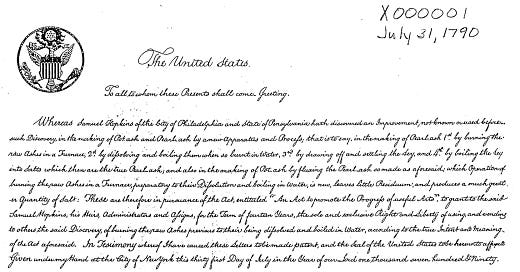 X000001
July 31, 1790
The United States.
To all to whom these Presents shall come, Greeting.
Whereas Samuel Hopkins of the City of Philadelphia and State of Pensylvania hath discovered an Improvement, not known or used before
such Discovery, in the making of Pot ash and Pearl ash by a new Apparatus and Process; that is to say, in the making of Pearl ash 1st. by burning the
raw Ashes in a Furnace, 2d. by dissolving and boiling them when so burnt in Water, 3rd. by drawing off and settling the Ley, and 4th. by boiling the Ley
into Salts which then are the true Pearl ash; and also in the making of Pot ash by fluxing the Pearl ash so made as aforesaid; which Operation of
burning the raw Ashes in a Furnace, preparatory to their Dissolution and boiling in Water, is new, leaves little Residuum; and produces a much great-
er Quantity of Salt: These are therefore in pursuance of the Act, entitled "An Act to promote the Progress of useful Arts", to grant to the said
Samuel Hopkins, his Heirs, Administrators and Assigns, for the Term of fourteen Years, the sole and exclusive Right and Liberty of using and vending
to others the said Discovery, of burning the raw Ashes previous to their being dissolved and boiled in Water, according to the true Intent and meaning
of the Act aforesaid. In Testimony whereof I have caused these Letters to be made patent, and the Seal of the United States to be hereunto affixed
Given under my Hand at the City of New York this thirty first Day of July in the Year of our Lord one thousand seven hundred & Ninety.